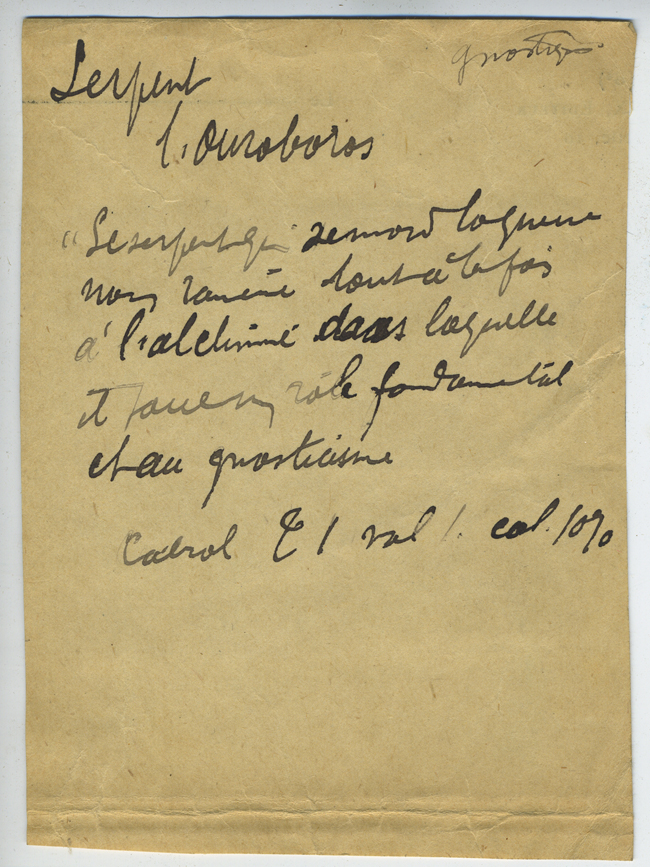 gnostiques
Serpent
l'Ouroboros
"Le serpent qui se mord la queue
nous ramène tout à la fois
à l'alchimie dans laquelle
il joue un rôle fondamental
et au gnosticisme
Cabrol T I vol I. col.